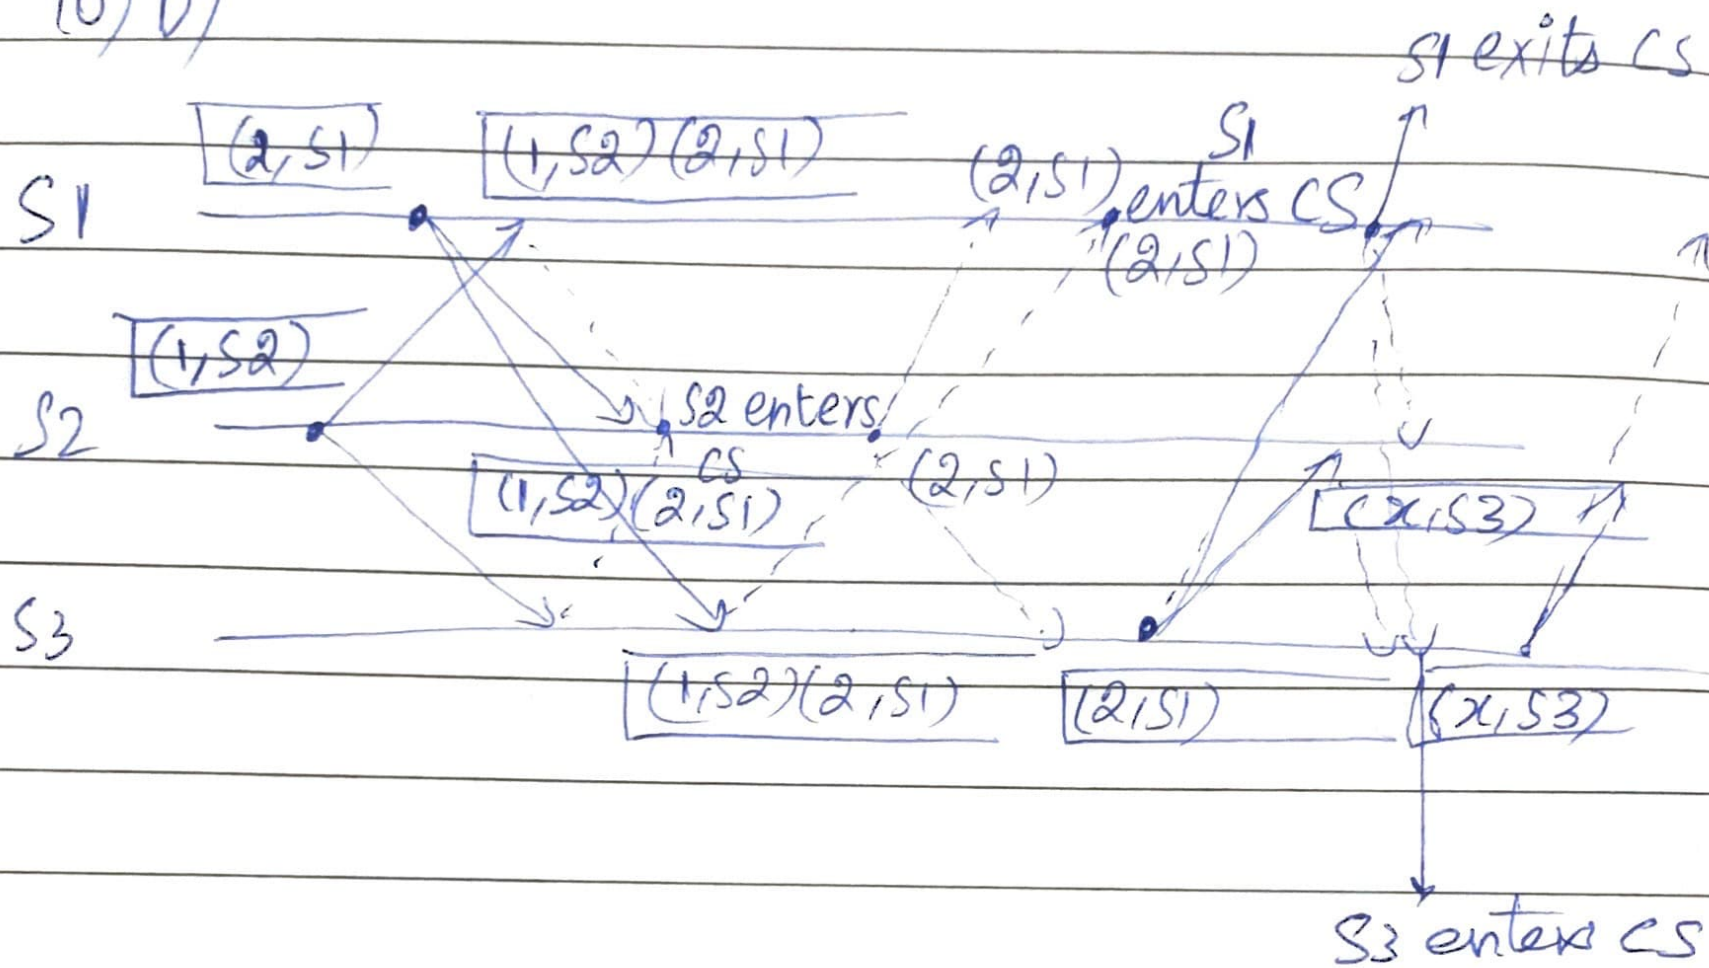 S1 exits CS
(2,S1)
(1,S2)(2,S1)
(2,S1)
S1
enters CS
S1
(2,S1)
(1,S2)
S2
S2 enters
CS
(1,S2)(2,S1)
(2,S1)
(x,S3)
S3
(1,S2)(2,S1)
(2,S1)
(x,S3)
S3 enters CS